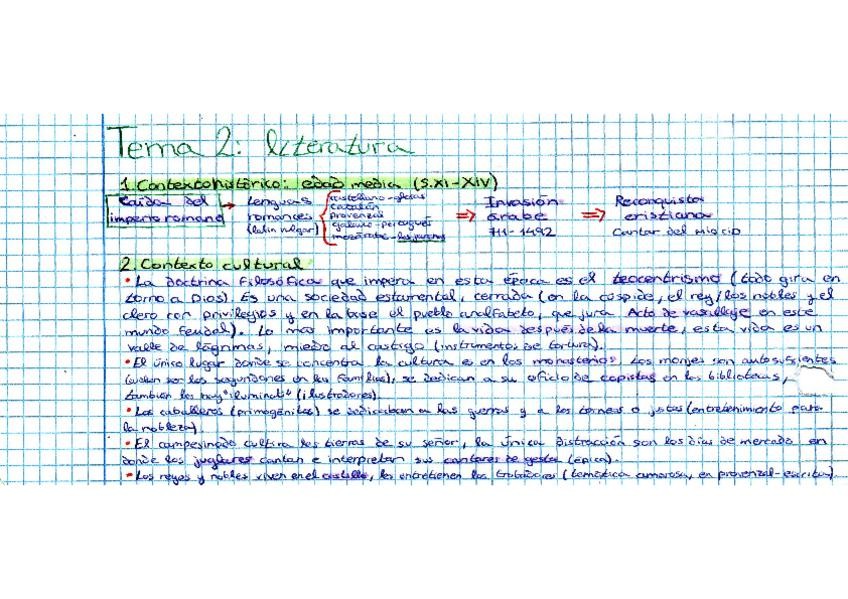 Tema 2: literatura
1. Contexto histórico: edad media (S.XI-XIV)
Caída del imperio romano
→ lenguas romances (latín vulgar)
castellano - glosas
catalán
provenzal
galaico-portugués
mozárabe - las jarchas
⇒ Invasión árabe 711-1492
⇒ Reconquista cristiana
Cantar del mio cid
2. Contexto cultural
• La doctrina filosófica que impera en esta época es el teocentrismo (todo gira en
torno a Dios). Es una sociedad estamental, cerrada (en la cúspide, el rey/los nobles y el
clero con privilegios y en la base el pueblo analfabeto, que jura Acto de vasallaje en este
mundo feudal). Lo más importante es la vida después de la muerte, esta vida es un
valle de lágrimas, miedo al castigo (instrumentos de tortura).
• El único lugar donde se concentra la cultura es en los monasterios. Los monjes son autosuficientes
(suelen ser los segundones en las familias), se dedican a su oficio de copistas en las bibliotecas,
también los hay "iluminati" (ilustradores).
• Los caballeros (primogénitos) se dedicaban a las guerras y a los torneos o justas (entretenimiento para
la nobleza).
• El campesinado cultiva las tierras de su señor, la única distracción son los días de mercado en
donde los juglares cantan e interpretan sus cantares de gesta (épica).
• Los reyes y nobles viven en el castillo, les entretienen los trovadores (temática amorosa, en provenzal-escrito).